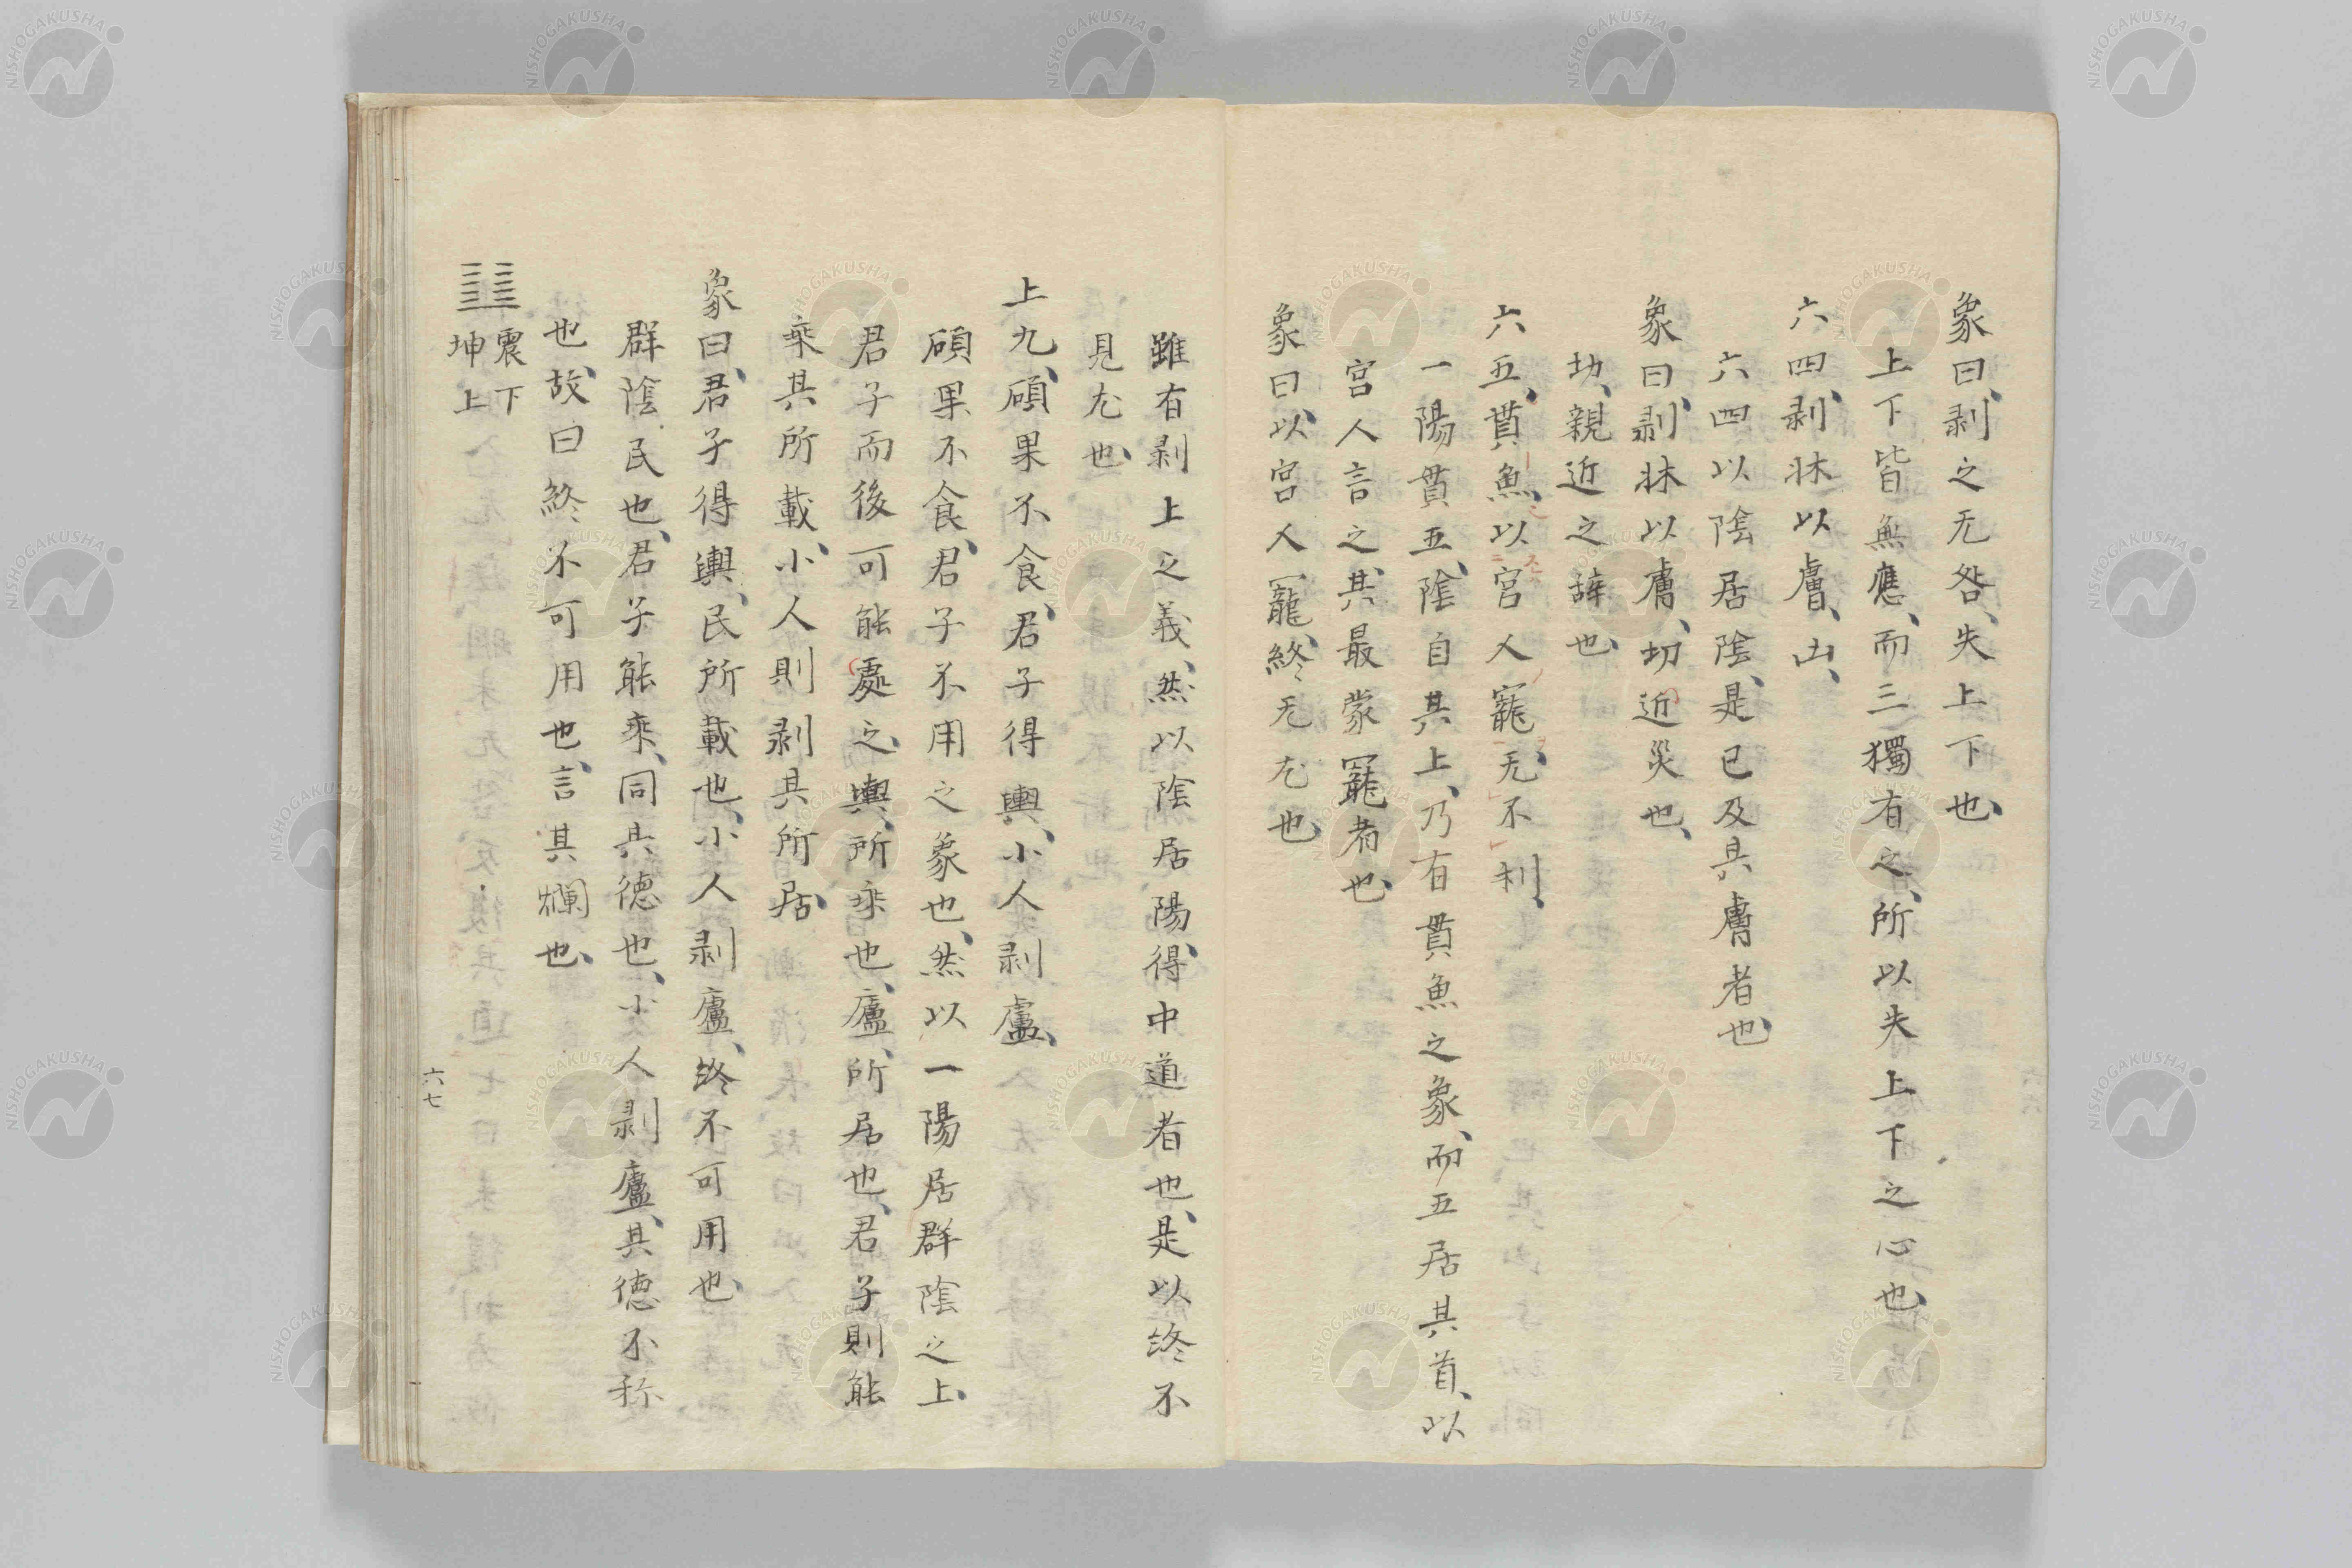 象曰、剥之无咎、失上下也、
上下皆無應、而三獨有之、所以失上下之心也、
六四、剥牀以膚、凶、
六四以陰居陰、是已及其膚者也、
象曰、剥牀以膚、切近災也、
切、親近之辭也、
六五、貫魚、以宮人寵、无不利、
一陽貫五、陰自其上、乃有貫魚之象、而五居其首、以
宮人言之、其最蒙寵者也、
象曰、以宮人寵、終无尤也、
雖有剥上之義、然以陰居陽、得中道者也、是以終不
見尤也、
上九、碩果不食、君子得輿、小人剥廬、
碩果不食、君子不用之象也、然以一陽居群陰之上、
君子而後可能處之、輿、所乘也、廬、所居也、君子則能
乘其所載、小人則剥其所居、
象曰、君子得輿、民所載也、小人剥廬、終不可用也、
群陰民也、君子能乘、同其德也、小人剥廬、其德不称
也、故曰終不可用也、言其爛也、
震下
坤上
六七
NISHOGAKUSHA